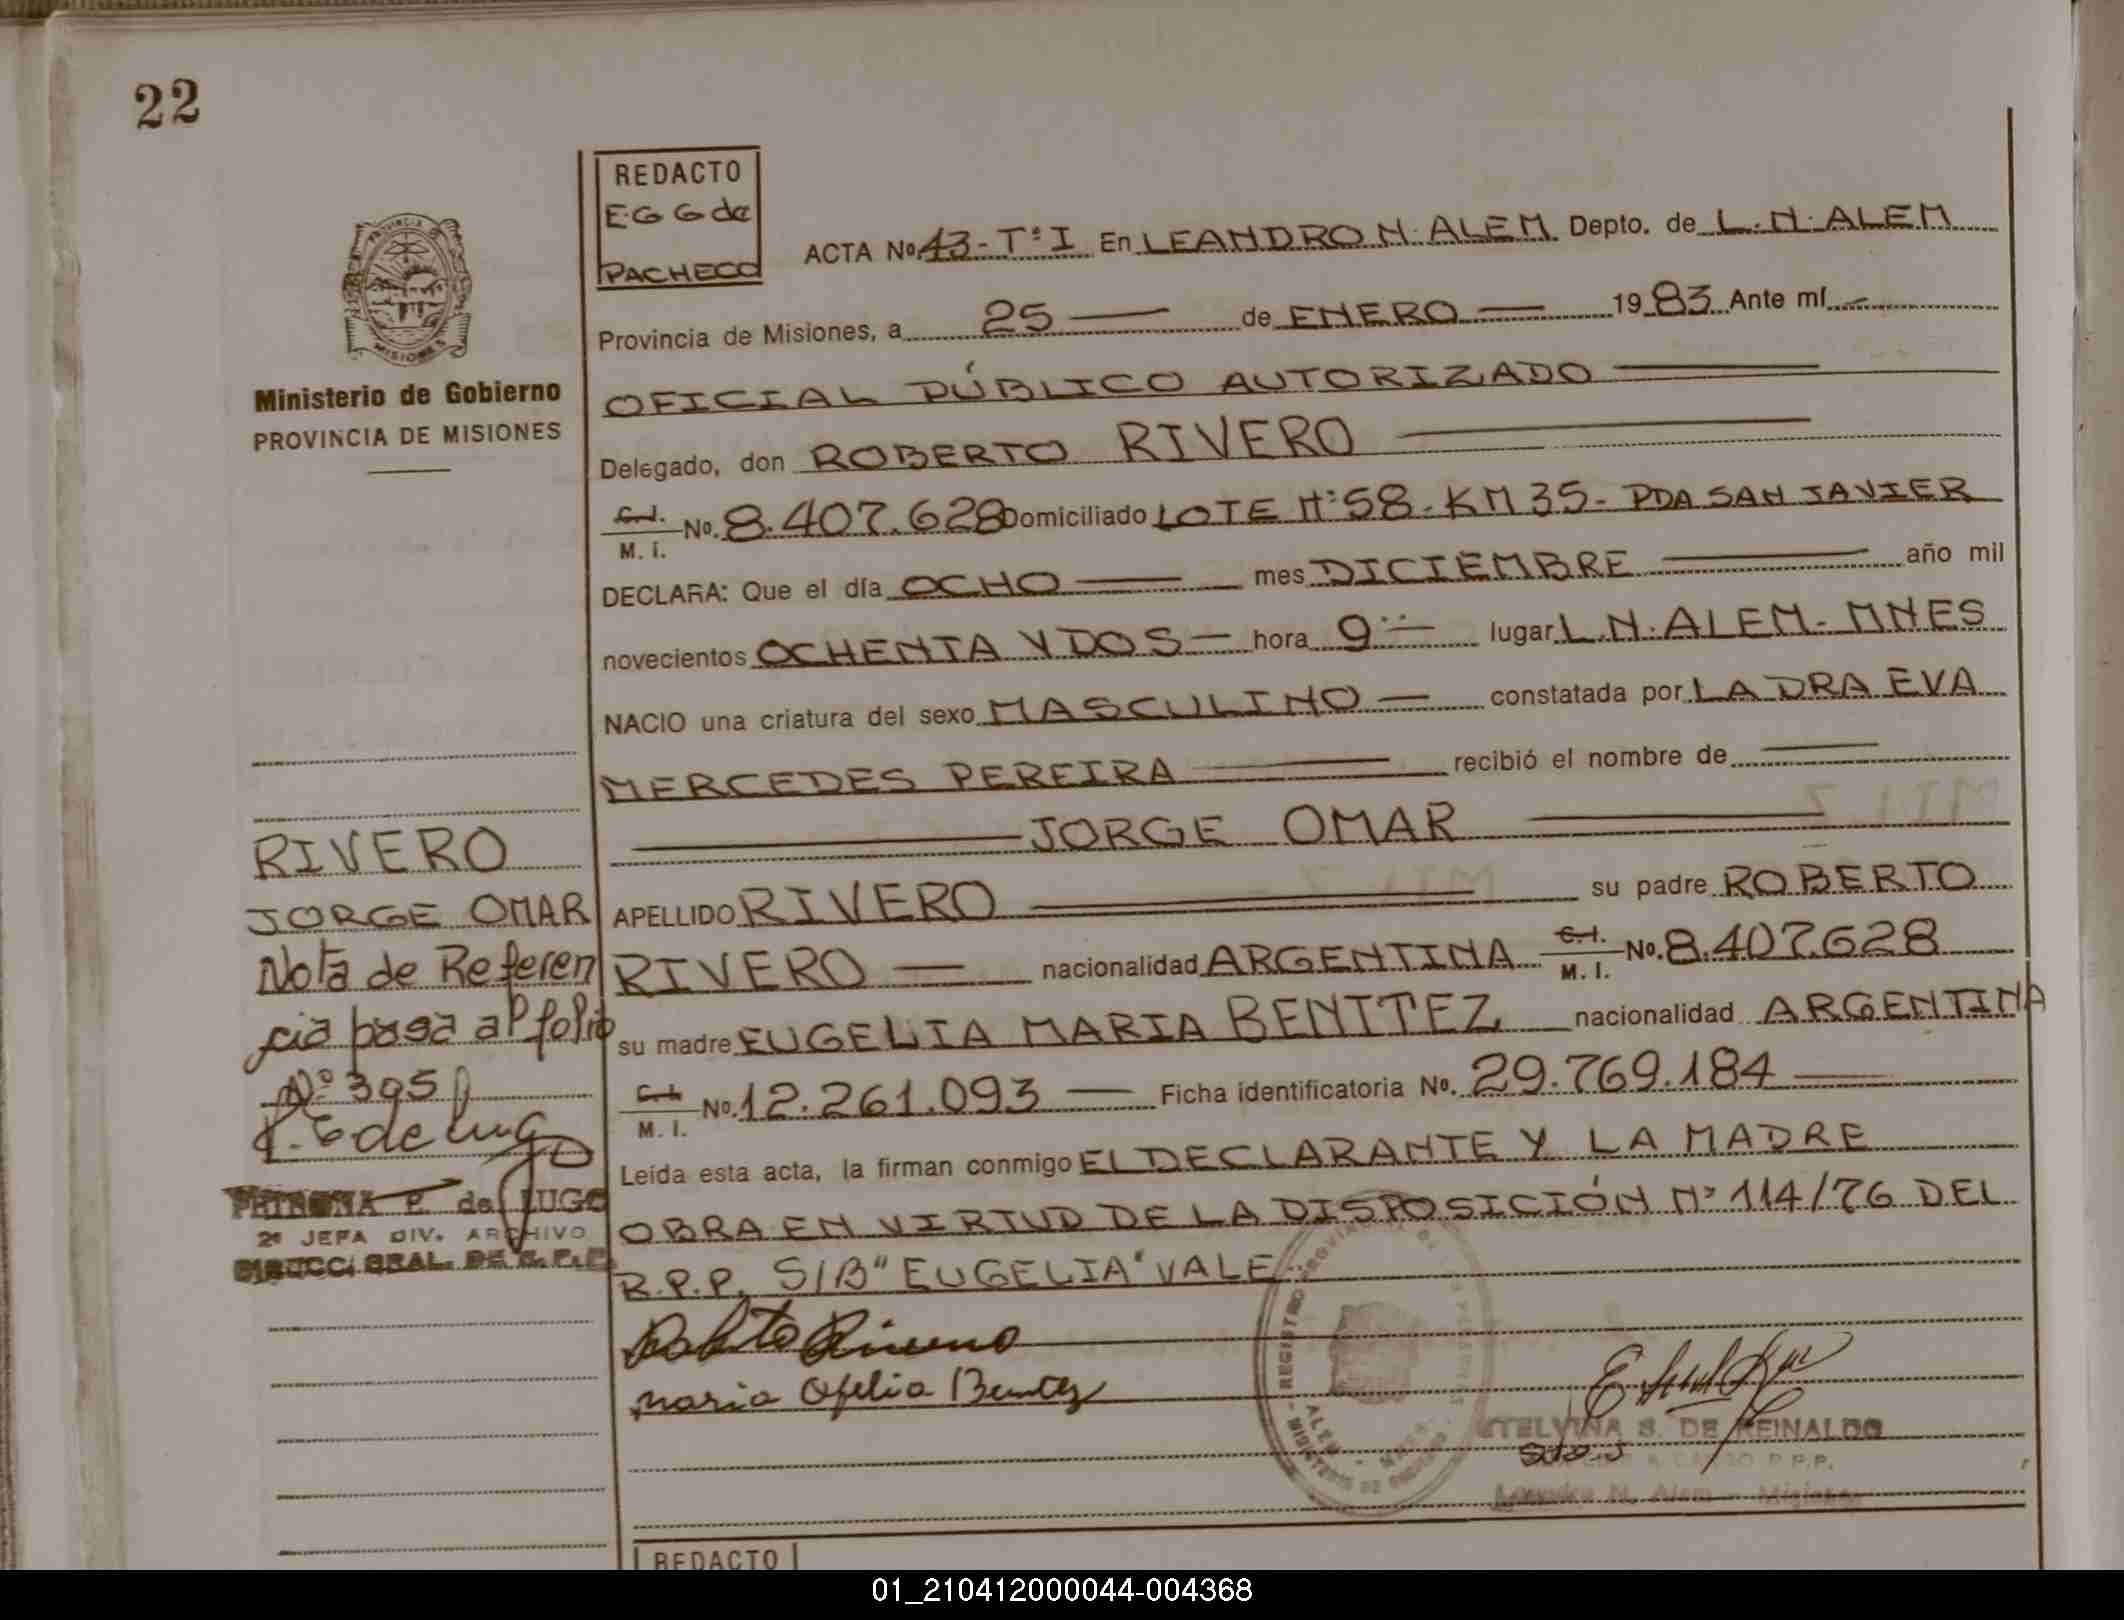 22
REDACTO
E.G G de
PACHECO
ACTA Nº 43-TºI En LEANDRO N. ALEM Depto. de L. N. ALEM
Provincia de Misiones, a 25 — de ENERO — 1983 Ante mí
OFICIAL PÚBLICO AUTORIZADO
Delegado, don ROBERTO RIVERO
C.I.
M. I. No. 8.407.628 Domiciliado LOTE Nº 58 - KM 35 - PDA SAN JAVIER
DECLARA: Que el día OCHO — mes DICIEMBRE — año mil
novecientos OCHENTA Y DOS — hora 9 — lugar L.N. ALEM - MNES
NACIO una criatura del sexo MASCULINO — constatada por LA DRA EVA
MERCEDES PEREIRA — recibió el nombre de —
— JORGE OMAR —
APELLIDO RIVERO — su padre ROBERTO
RIVERO — nacionalidad ARGENTINA C.I.
M. I. No. 8.407.628
su madre EUGELIA MARIA BENITEZ nacionalidad ARGENTINA
C.I.
M. I. No. 12.261.093 — Ficha identificatoria No. 29.769.184 —
Leída esta acta, la firman conmigo EL DECLARANTE Y LA MADRE
OBRA EN VIRTUD DE LA DISPOSICIÓN Nº 114/76 DEL
R.P.P. S/B "EUGELIA" VALE
Roberto Rivero
Maria Ofelia Benitez
ETELVINA S. DE REINALDO
A CARGO R.P.P.
Leandro N. Alem - Misiones
REGISTRO PROVINCIAL DE LAS PERSONAS
ALEM - MNES.
- MINISTERIO DE GOBIERNO -
PROVINCIA DE
MISIONES
Ministerio de Gobierno
PROVINCIA DE MISIONES
RIVERO
JORGE OMAR
Nota de Referen
cia pasa al folio
Nº 395
P. E de Lugo
PETRONA E. de LUGO
2º JEFA DIV. ARCHIVO
DIRECC. GRAL. DE R. P. P.
REDACTO
01_210412000044-004368